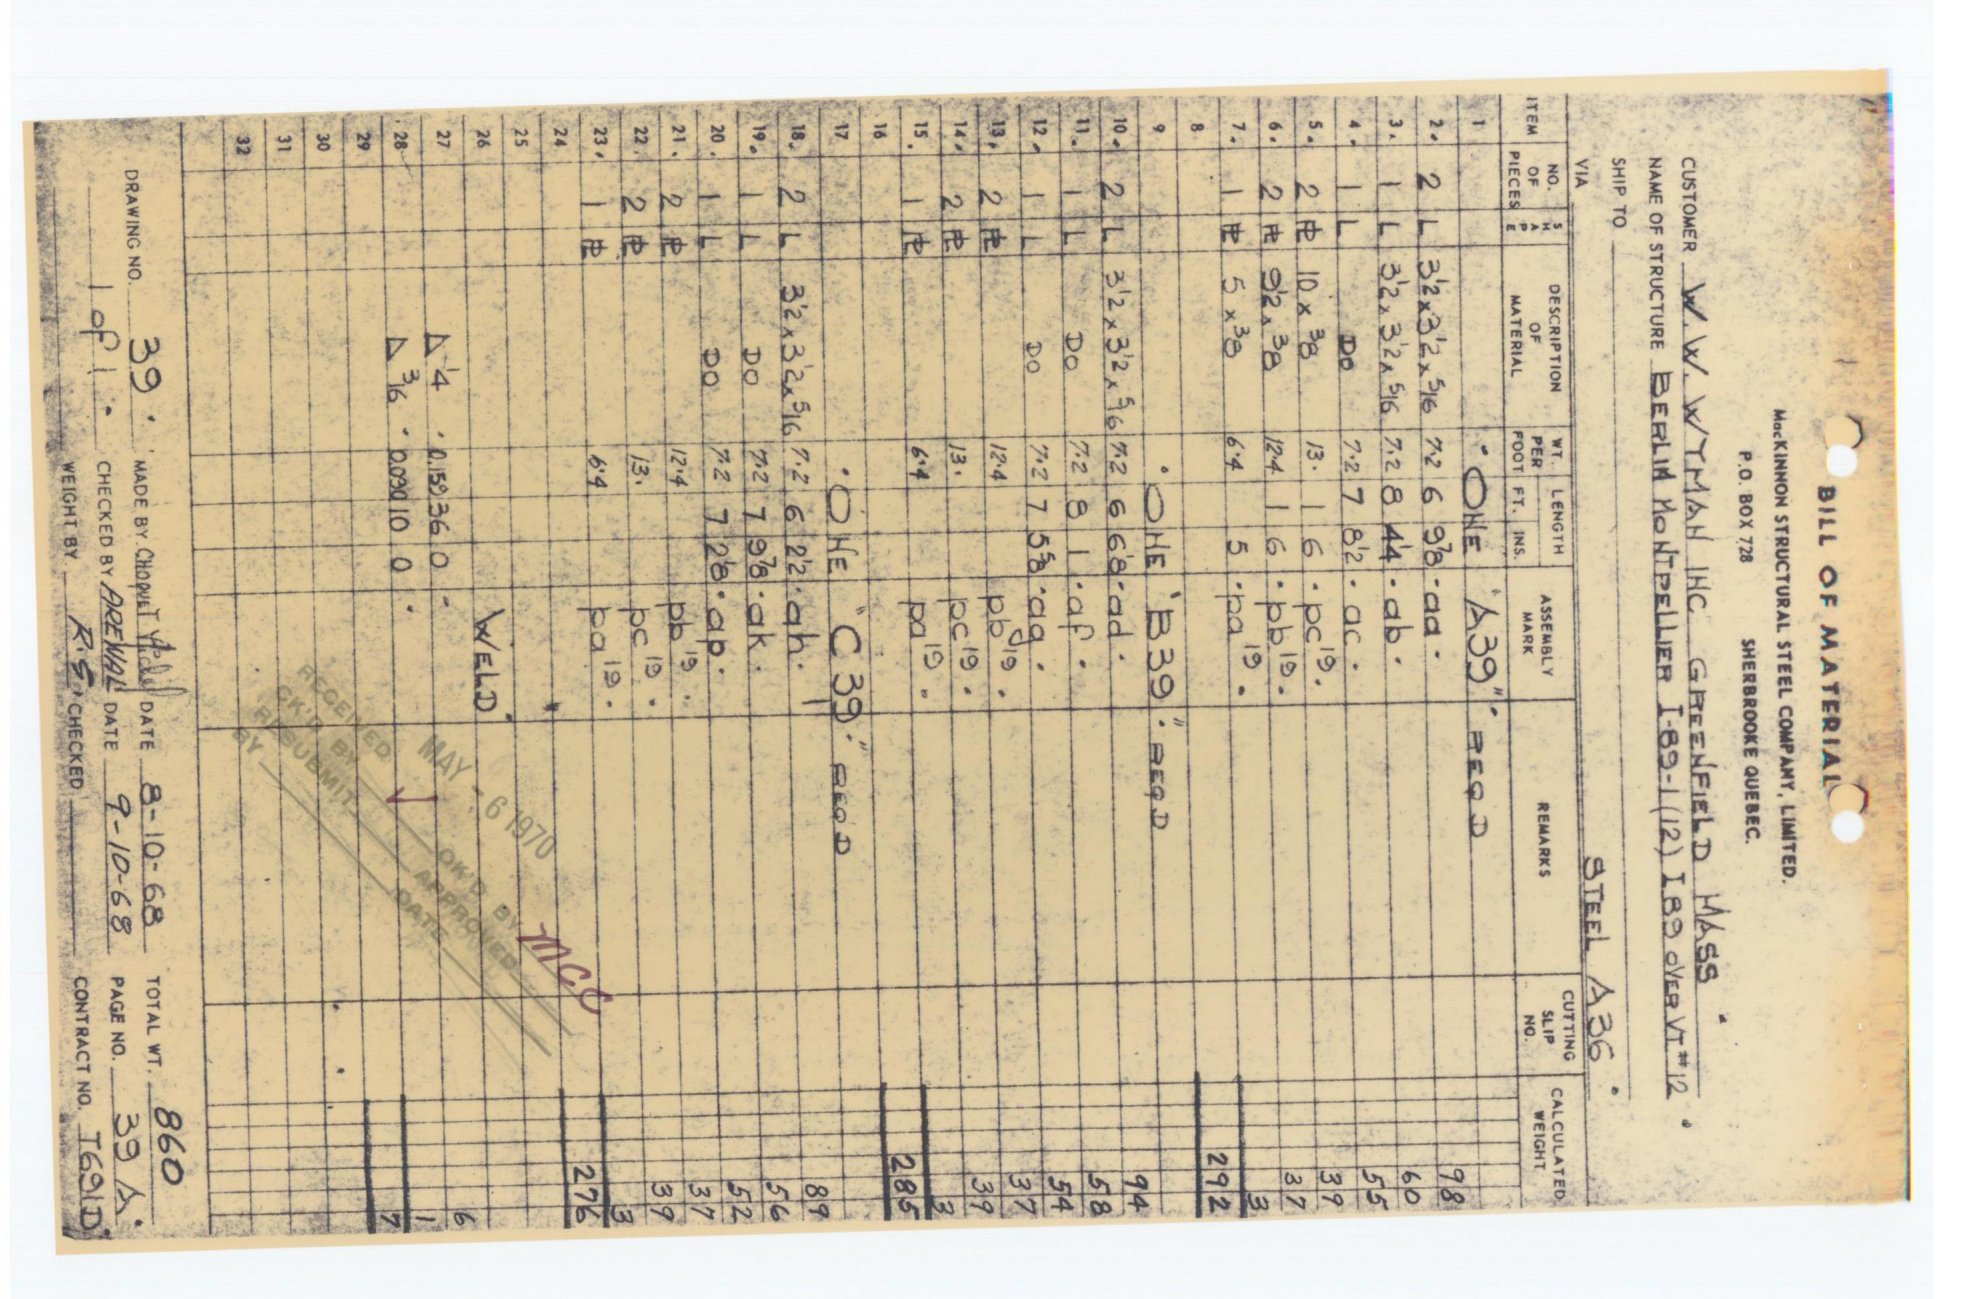 BILL OF MATERIAL
MacKINNON STRUCTURAL STEEL COMPANY, LIMITED.
P.O. BOX 728 SHERBROOKE QUEBEC.
CUSTOMER W. W. WYMAN INC. GREENFIELD MASS.
NAME OF STRUCTURE BERLIN MONTPELLIER I-89-1(12) I89 OVER VT #12.
SHIP TO
VIA STEEL A36.
ITEM NO. OF PIECES SHAPE DESCRIPTION OF MATERIAL WT. PER FOOT LENGTH FT. INS. ASSEMBLY MARK REMARKS CUTTING SLIP NO. CALCULATED WEIGHT
1 ONE "A39". REQ D
2. 2 L 3½ x 3½ x 5/16 7.2 6 9⅞ aa. 98
3. 1 L 3½ x 3½ x 5/16 7.2 8 4¼ ab. 60
4. 1 L DO 7.2 7 8½ ac. 55
5. 2 PL 10 x ⅜ 13. 1 6 pc19. 39
6. 2 PL 9½ x ⅜ 12.4 1 6 pb19. 37
7. 1 PL 5 x ⅜ 6.4 5 pa19. 3
8 292
9 ONE "B39." REQ D
10. 2 L 3½ x 3½ x 5/16 7.2 6 6⅛ ad. 94
11. 1 L DO 7.2 8 1 af. 58
12. 1 L DO 7.2 7 5⅝ ag. 54
13. 2 PL 12.4 pb19. 37
14. 2 PL 13. pc19. 39
15. 1 PL 6.4 pa19. 3
16 285
17 ONE "C39." REQ D
18. 2 L 3½ x 3½ x 5/16 7.2 6 2½ ah. 89
19. 1 L DO 7.2 7 9⅞ ak. 56
20. 1 L DO 7.2 7 2⅛ ap. 52
21. 2 PL 12.4 pb19. 37
22. 2 PL 13. pc19. 39
23. 1 PL 6.4 pa19. 3
24 276
25
26 WELD.
27 ¼ 0.159 36 0 6
28 3/16 0.090 10 0 1
29 7
30
31
32
RECEIVED MAY - 6 1970
CK'D BY OK'D BY MCC
RESUBMIT APPROVED
BY DATE
DRAWING NO. 39. MADE BY CHOQUET DATE 8-10-68 TOTAL WT. 860
1 of 1. CHECKED BY ARENAL DATE 9-10-68 PAGE NO. 39 A.
WEIGHT BY R.G. CHECKED CONTRACT NO. T691D.